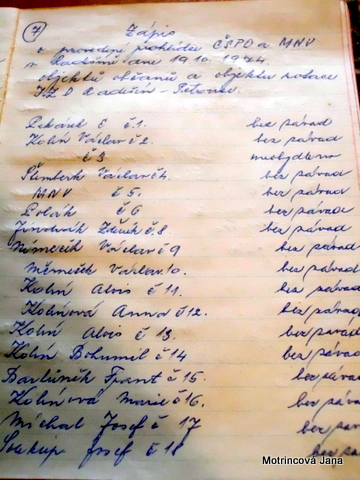 7
Zápis
o provedení prohlídce ČSPO a MNV
v Radšíně dne 19.10.1974.
objektů občanů a objektu rotace
JZD Radšín - Petrovice
č 1. bez závad
Kolín Václav č 2. bez závad
č 3 neobydleno
Šlimberk Václav č 4. bez závad
MNV č 5. bez závad
Polák č 6 bez závad
Jindrák Zdeněk č 8 bez závad
Němeček Václav č 9 bez závad
Němeček Václav 10. bez závad
Kolín Alois č 11. bez závad
Kolínová Anna č 12. bez závad
Kolín Alois č 13. bez závad
Kolín Bohumil č 14 bez závad
Bartůněk Frant č 15. bez závad
Kolínová Marie č 16. bez závad
Michal Josef č 17 bez závad
Soukup Josef č 18 bez
Motrincová Jana